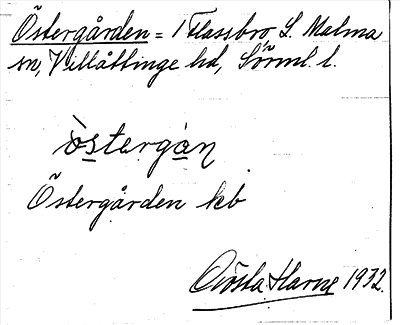 Östergården = 1 Flassbro, L. Malma
sn, Villåttinge hd, Sörml. l.
òstergan
Östergården kb
Gösta Harne 1932.